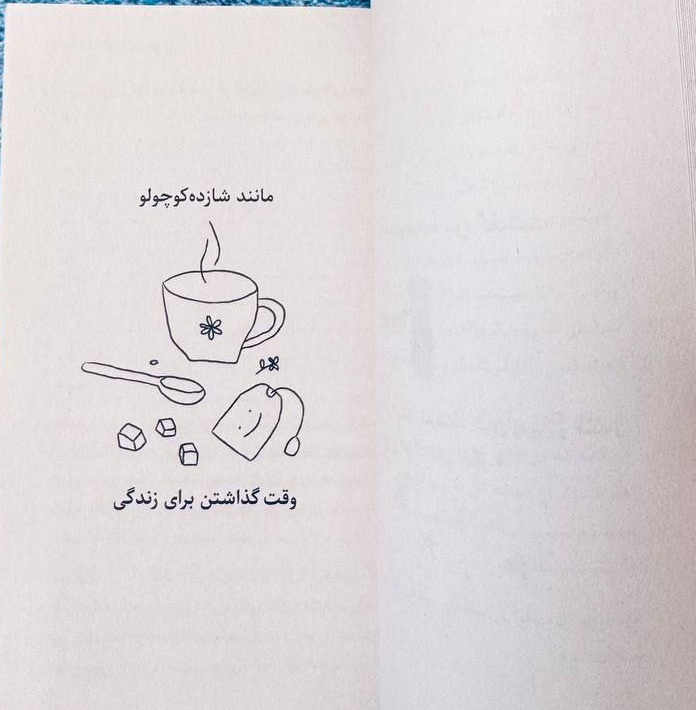 مانند شازده‌کوچولو
وقت گذاشتن برای زندگی